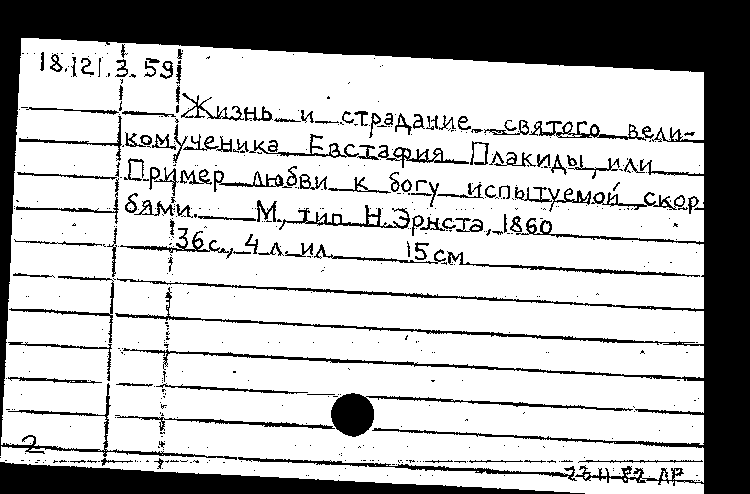 18.121.3.59
Жизнь и страдание святого вели-
комученика Евстафия Плакиды, или
Пример любви к богу испытуемой скор
бями. М., тип. Н. Эрнста, 1860
36 с., 4 л. ил. 15 см.
2